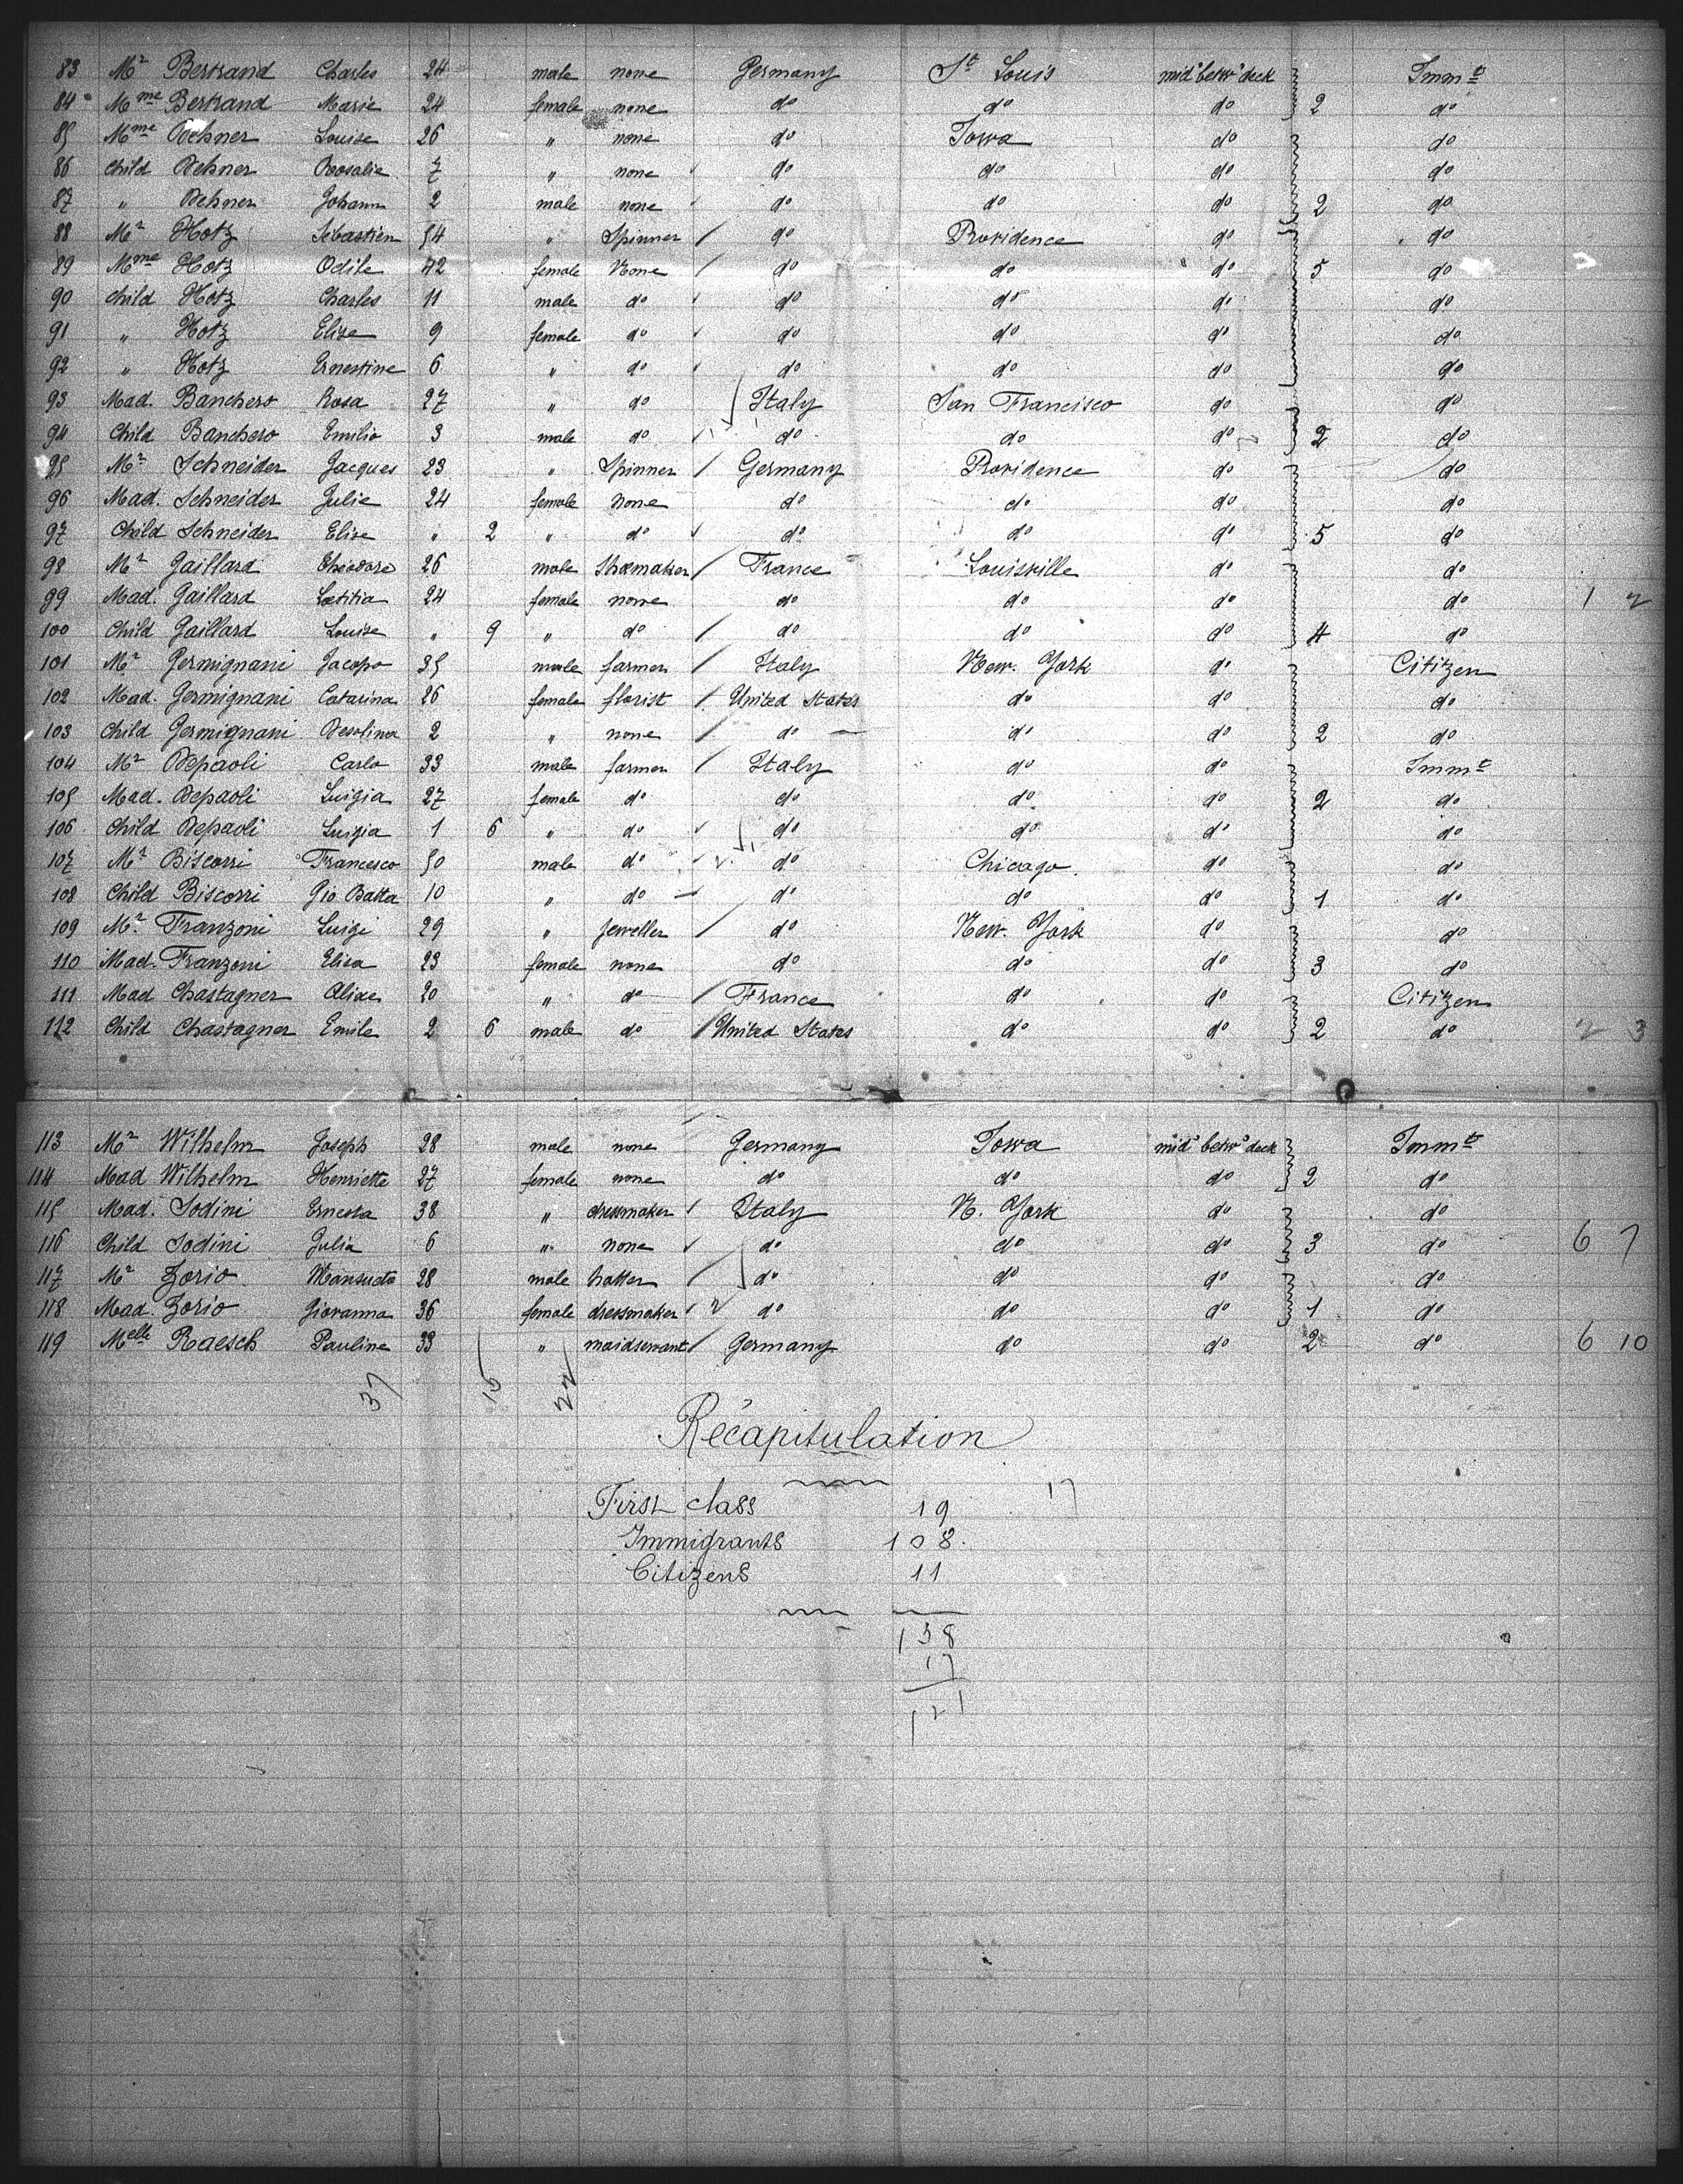 83 Mr Bertrand Charles 24 male none Germany St Louis mid betw deck Immt
84 Mme Bertrand Marie 24 female none do do do 2 do
85 Mme Dehner Louise 26 " none do Iowa do do
86 child Dehner Rosalie 7 " none do do do do
87 " Dehner Johann 2 male none do do do 2 do
88 Mr Hotz Sebastien 54 " Spinner do Providence do do
89 Mme Hotz Odile 42 female None do do do 5 do
90 child Hotz Charles 11 male do do do do do
91 " Hotz Elise 9 female do do do do do
92 " Hotz Ernestine 6 " do do do do do
93 Mad. Banchero Rosa 27 " do Italy San Francisco do do
94 Child Banchero Emilio 3 male do do do do 2 do
95 Mr Schneider Jacques 23 " Spinner Germany Providence do do
96 Mad. Schneider Julie 24 female none do do do do
97 Child Schneider Elise " 2 " do do do do 5 do
98 Mr Gaillard Theodore 26 male Shoemaker France Louisville do do
99 Mad. Gaillard Lœtitia 24 female none do do do do 1 2
100 Child Gaillard Louise " 9 " do do do do 4 do
101 Mr Germignani Jacopo 35 male farmer Italy New. York do Citizen
102 Mad. Germignani Catarina 26 female florist United States do do do
103 Child Germignani Desolina 2 " none do do do 2 do
104 Mr Depaoli Carlo 33 male farmer Italy do do Immt
105 Mad. Depaoli Luigia 27 female do do do do 2 do
106 Child Depaoli Luigia 1 6 " do do do do do
107 Mr Biscorri Francesco 50 male do do Chicago. do do
108 Child Biscorri Gio Batta 10 " do do do do 1 do
109 Mr Franzoni Luigi 29 " Jeweller do New. York do do
110 Mad. Franzoni Elisa 23 female none do do do 3 do
111 Mad Chastagner Alixe 20 " do France do do Citizen
112 Child Chastagner Emile 2 6 male do United States do do 2 do 2 3
113 Mr Wilhelm Joseph 28 male none Germany Iowa mid betw deck Immt
114 Mad Wilhelm Henriette 27 female none do do do 2 do
115 Mad. Sodini Ernesta 38 " dressmaker Italy N. York do do
116 Child Sodini Julia 6 " none do do do 3 do 6 7
117 Mr Zorio Mansueto 28 male hatter do do do do
118 Mad. Zorio Giovanna 36 female dressmaker do do do 1 do
119 Melle Raesch Pauline 33 " maidservant Germany do do 2 do 6 10
37 15 22
Récapitulation
First class 19 17
Immigrants 108.
Citizens 11
138
17
121